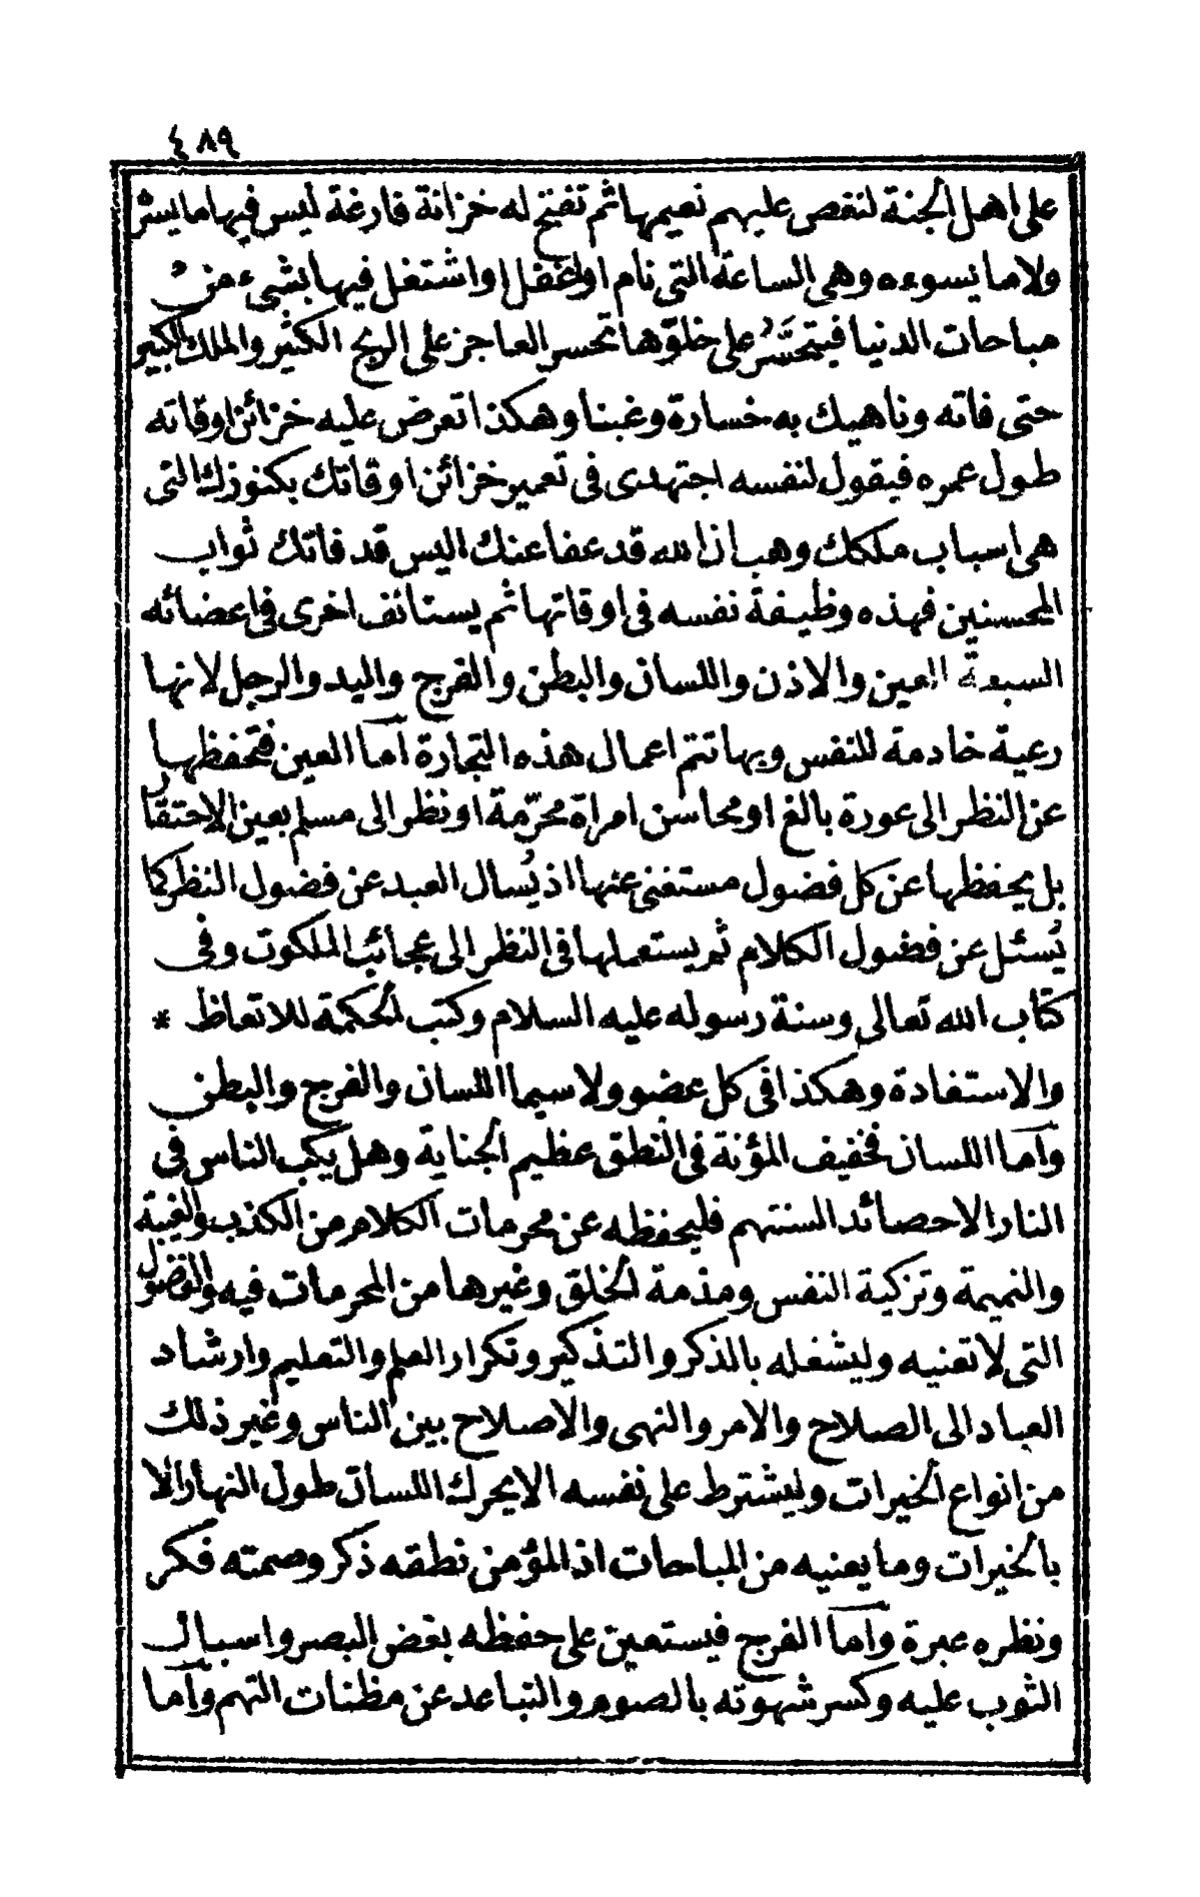 ٤٨٩
على اهل الجنة لنغص عليهم نعيمها ثم تفتح له خزانة فارغة ليس فيها ما يسرّ
ولا ما يسوءه وهى الساعة التى نام او اغفل او اشتغل فيها بشىء من
مباحات الدنيا فيتحسَّر على خلوّها تحسر العاجز على الربح الكثير والملك الكبير
حتى فاته وناهيك به خسارة وغبنا وهكذا تعرض عليه خزائن اوقاته
طول عمره فيقول لنفسه اجتهدى فى تعمير خزائن اوقاتك بكنوزك التى
هى اسباب ملكك وهب ان الله قد عفا عنك اليس قد فاتك ثواب
المحسنين فهذه وظيفة نفسه فى اوقاتها ثم يستائف اخرى فى اعضائه
السبعة العين والاذن واللسان والبطن والفرج واليد والرجل لانها
رعية خادمة للنفس وبها تتم اعمال هذه التجارة اما العين فتحفظها
عن النظر الى عورة بالغ او محاسن امراة محرّمة او نظر الى مسلم بعين الاحتقار
بل يحفظها عن كل فضول مستغنى عنها اذ يُسال العبد عن فضول النظر كما
يُسئل عن فضول الكلام ثم يستعملها فى النظر الى عجائب الملكوت وفى
كتاب الله تعالى وسنة رسوله عليه السلام وكتب الحكمة للاتعاظ *
والاستفادة وهكذا فى كل عضو ولا سيما اللسان والفرج والبطن
واما اللسان فخفيف المؤنة فى النطق عظيم الجناية وهل يكب الناس فى
النار الا حصائد السنتهم فليحفظه عن محرمات الكلام من الكذب والغيبة
والنميمة وتزكية النفس ومذمة الخلق وغيرها من المحرمات فيه والفضول
التى لا تعنيه وليشغله بالذكر والتذكير وتكرار العلم والتعليم وارشاد
العباد الى الصلاح والامر والنهى والاصلاح بين الناس وغير ذلك
من انواع الخيرات وليشترط على نفسه الا يحرك اللسان طول النهار الا
بالخيرات وما يعنيه من المباحات اذ المؤمن نطقه ذكر وصمته فكر
ونظره عبرة واما الفرج فيستعين على حفظه بغض البصر واسبال
الثوب عليه وكسر شهوته بالصوم والتباعد عن مظنات التهم واما